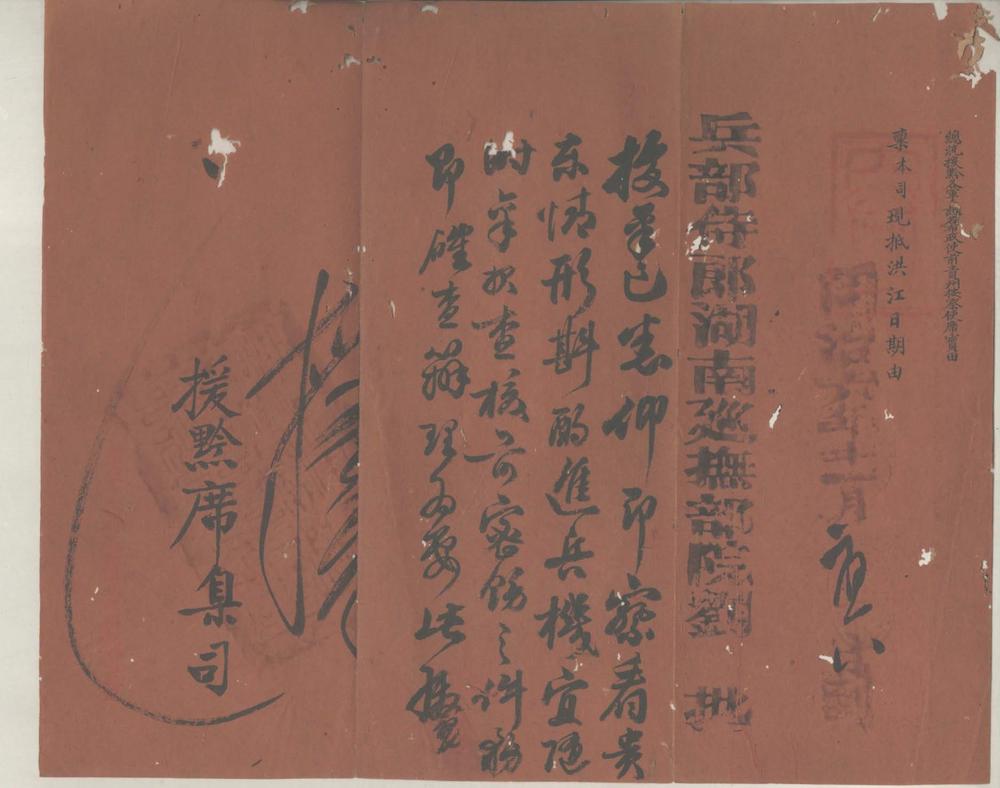 總統援黔各軍 布政使前貴州按察使席寶田
稟本司現抵洪江日期由
同治六年十一月 日到
兵部侍郎湖南巡撫部院劉 批
據稟已悉仰即察看貴
東情形斟酌進兵機宜隨
時稟報查核前密飭之件務
即確查辦理為要此繳
援黔席臬司